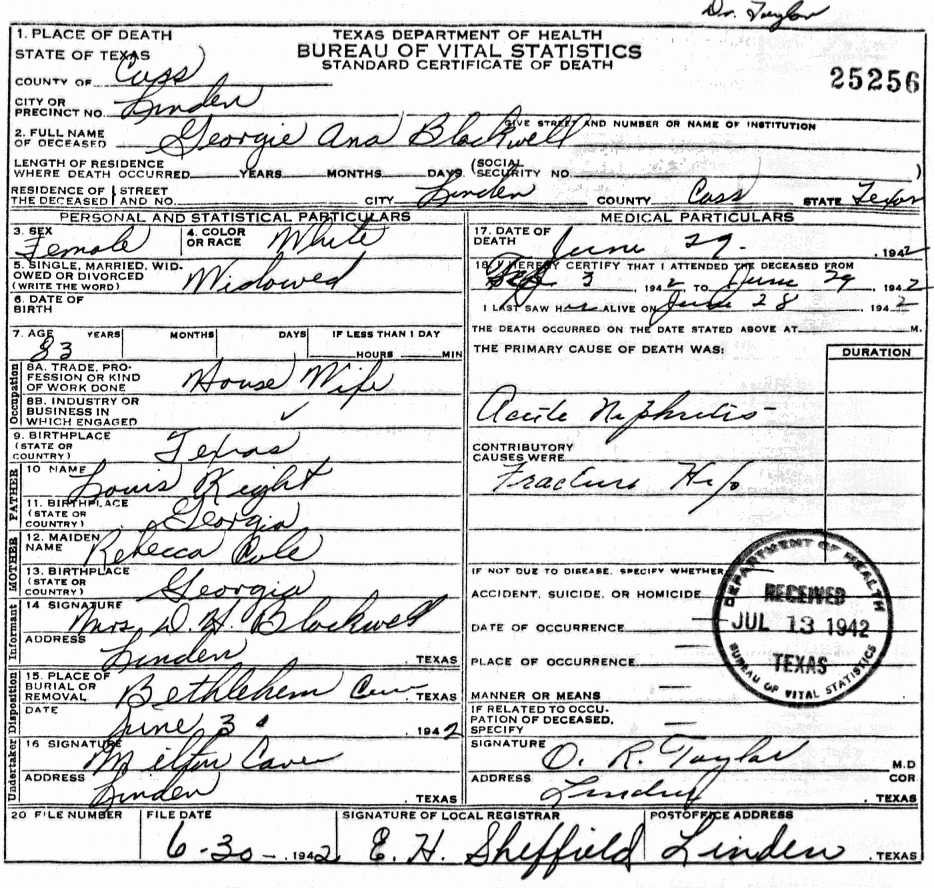 Dr. Taylor
1. PLACE OF DEATH
STATE OF TEXAS
COUNTY OF Cass
TEXAS DEPARTMENT OF HEALTH
BUREAU OF VITAL STATISTICS
STANDARD CERTIFICATE OF DEATH
25256
CITY OR PRECINCT NO. Linden
GIVE STREET AND NUMBER OR NAME OF INSTITUTION
2. FULL NAME OF DECEASED Georgie Ana Blackwell
LENGTH OF RESIDENCE WHERE DEATH OCCURRED YEARS MONTHS DAYS (SOCIAL SECURITY NO. )
RESIDENCE OF THE DECEASED STREET AND NO. CITY Linden COUNTY Cass STATE Texas
PERSONAL AND STATISTICAL PARTICULARS
3. SEX Female 4. COLOR OR RACE White
5. SINGLE, MARRIED, WIDOWED OR DIVORCED (WRITE THE WORD) Widowed
6. DATE OF BIRTH
7. AGE YEARS MONTHS DAYS IF LESS THAN 1 DAY
83 HOURS MIN
Occupation
8A. TRADE, PROFESSION OR KIND OF WORK DONE House Wife
8B. INDUSTRY OR BUSINESS IN WHICH ENGAGED ✓
9. BIRTHPLACE (STATE OR COUNTRY) Texas
FATHER
10 NAME Louis Right
11. BIRTHPLACE (STATE OR COUNTRY) Georgia
MOTHER
12. MAIDEN NAME Rebecca Cole
13. BIRTHPLACE (STATE OR COUNTRY) Georgia
Informant
14 SIGNATURE Mrs. D. H. Blackwell
ADDRESS Linden, TEXAS
Disposition
15. PLACE OF BURIAL OR REMOVAL Bethlehem Cem TEXAS
DATE June 30, 1942
Undertaker
16 SIGNATURE Milton Caver
ADDRESS Linden, TEXAS
MEDICAL PARTICULARS
17. DATE OF DEATH June 29. 1942
18. I HEREBY CERTIFY THAT I ATTENDED THE DECEASED FROM
3, 1942 TO June 29, 1942
I LAST SAW H ALIVE ON June 28, 1942
THE DEATH OCCURRED ON THE DATE STATED ABOVE AT M.
THE PRIMARY CAUSE OF DEATH WAS: DURATION
Acute Nephritis
CONTRIBUTORY CAUSES WERE
Fracture Hip
IF NOT DUE TO DISEASE, SPECIFY WHETHER
ACCIDENT, SUICIDE, OR HOMICIDE
DATE OF OCCURRENCE
PLACE OF OCCURRENCE
MANNER OR MEANS
IF RELATED TO OCCUPATION OF DECEASED, SPECIFY
DEPARTMENT OF HEALTH
RECEIVED
JUL 13 1942
TEXAS
BUREAU OF VITAL STATISTICS
SIGNATURE O. R. Taylor M.D COR.
ADDRESS Linden, TEXAS
20 FILE NUMBER FILE DATE SIGNATURE OF LOCAL REGISTRAR POSTOFFICE ADDRESS
6-30-, 1942 E. H. Sheffield Linden, TEXAS